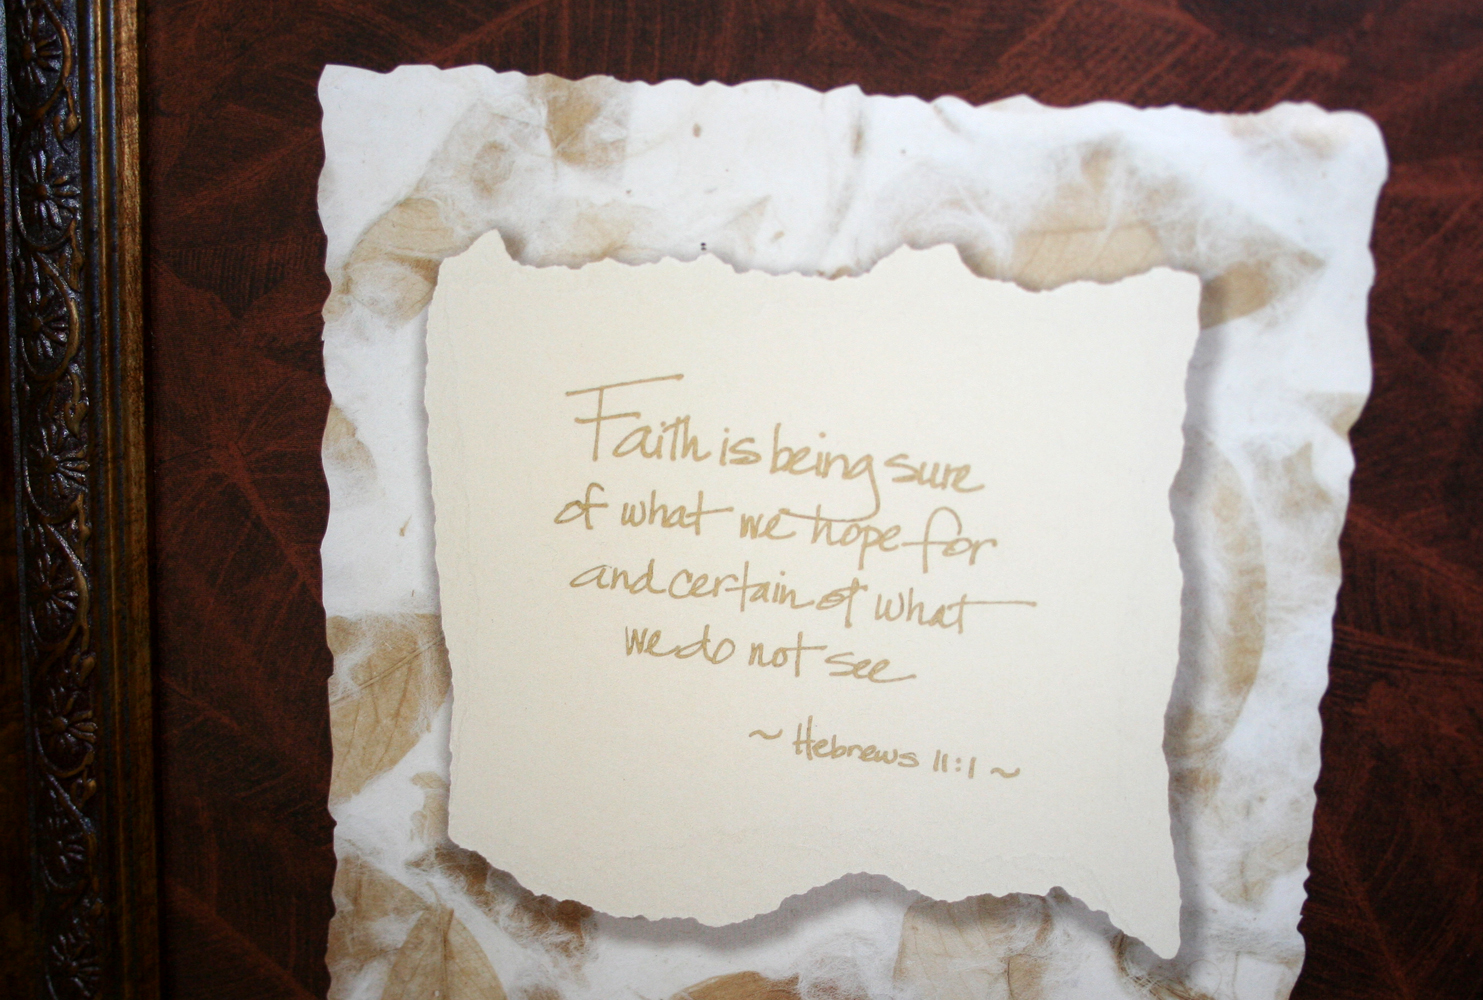 Faith is being sure
of what we hope for
and certain of what
we do not see
~ Hebrews 11:1 ~